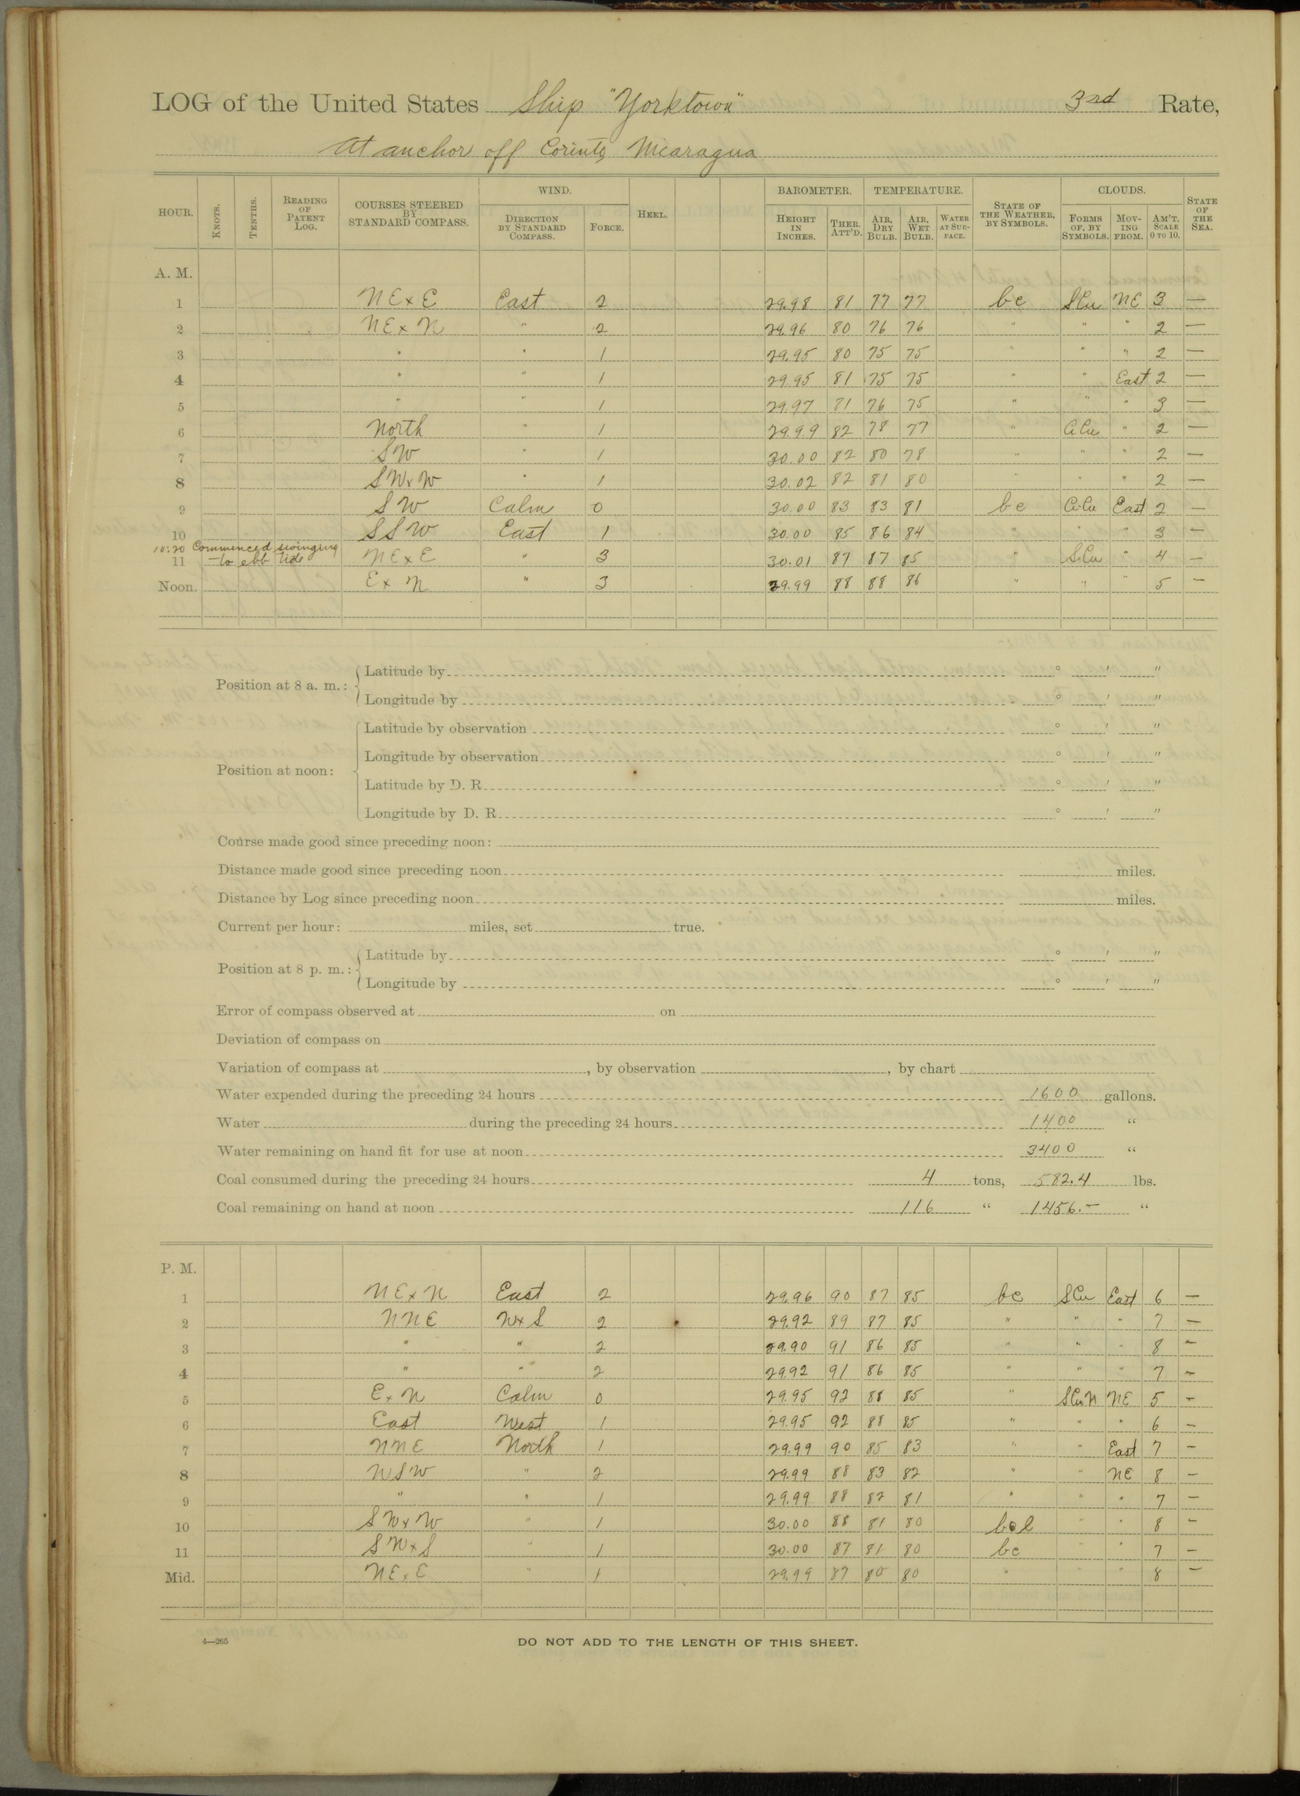 LOG of the United States Ship "Yorktown" 3rd Rate,
At anchor off Corinto, Nicaragua
HOUR. KNOTS. TENTHS. READING OF PATENT LOG. COURSES STEERED BY STANDARD COMPASS. WIND. DIRECTION BY STANDARD COMPASS. FORCE. HEEL. BAROMETER. HEIGHT IN INCHES. THER. ATT'D. TEMPERATURE. AIR, DRY BULB. AIR, WET BULB. WATER AT SURFACE. STATE OF THE WEATHER, BY SYMBOLS. CLOUDS. FORMS OF, BY SYMBOLS. MOVING FROM. AM'T. SCALE 0 TO 10. STATE OF THE SEA.
A. M.
1 NExE East 2 29.98 81 77 77 bc SCu NE 3 —
2 NExN " 2 29.96 80 76 76 " " " 2 —
3 " " 1 29.95 80 75 75 " " " 2 —
4 " " 1 29.95 81 75 75 " " East 2 —
5 " " 1 29.97 81 76 75 " " " 3 —
6 North " 1 29.99 82 78 77 " CiCu " 2 —
7 SW " 1 30.00 82 80 78 " " " 2 —
8 SWxW " 1 30.02 82 81 80 " " " 2 —
9 SW Calm 0 30.00 83 83 81 bc CiCu East 2 —
10 SSW East 1 30.00 85 86 84 " " " 3 —
10:20 Commenced swinging
11 to ebb tide NExE " 3 30.01 87 87 85 " SCu " 4 —
Noon. ExN " 3 29.99 88 88 86 " " " 5 —
Position at 8 a. m.: Latitude by ° ' "
Longitude by ° ' "
Position at noon: Latitude by observation ° ' "
Longitude by observation ° ' "
Latitude by D. R. ° ' "
Longitude by D. R. ° ' "
Course made good since preceding noon:
Distance made good since preceding noon miles.
Distance by Log since preceding noon miles.
Current per hour: miles, set true.
Position at 8 p. m.: Latitude by ° ' "
Longitude by ° ' "
Error of compass observed at on
Deviation of compass on
Variation of compass at , by observation , by chart
Water expended during the preceding 24 hours 1600 gallons.
Water during the preceding 24 hours 1400 "
Water remaining on hand fit for use at noon 3400 "
Coal consumed during the preceding 24 hours 4 tons, 582.4 lbs.
Coal remaining on hand at noon 116 " 1456.— "
P. M.
1 NExN East 2 29.96 90 87 85 bc SCu East 6 —
2 NNE WxS 2 29.92 89 87 85 " " " 7 —
3 " " 2 29.90 91 86 85 " " " 8 -
4 " " 2 29.92 91 86 85 " " " 7 -
5 ExN Calm 0 29.95 92 88 85 " SCuN NE 5 -
6 East West 1 29.95 92 88 85 " " " 6 -
7 NNE North 1 29.99 90 85 83 " " East 7 -
8 WSW " 2 29.99 88 83 82 " " NE 8 -
9 " " 1 29.99 88 82 81 " " " 7 -
10 SWxW " 1 30.00 88 81 80 bcl " " 8 -
11 SWxS " 1 30.00 87 81 80 bc " " 7 -
Mid. NExE " 1 29.99 87 80 80 " " " 8 -
4—265
DO NOT ADD TO THE LENGTH OF THIS SHEET.